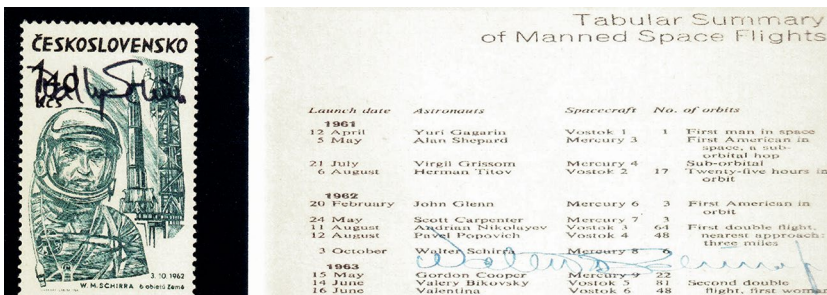 ČESKOSLOVENSKO
1.40
KČS
3.10.1962
W.M.SCHIRRA 6 obletů Země
Tabular Summary
of Manned Space Flights
Launch date Astronauts Spacecraft No. of orbits
1961
12 April Yuri Gagarin Vostok 1 1 First man in space
5 May Alan Shepard Mercury 3 First American in
space, a sub-
orbital hop
21 July Virgil Grissom Mercury 4 Sub-orbital
6 August Herman Titov Vostok 2 17 Twenty-five hours in
orbit
1962
20 February John Glenn Mercury 6 3 First American in
orbit
24 May Scott Carpenter Mercury 7 3
11 August Andrian Nikolayev Vostok 3 64 First double flight,
12 August Pavel Popovich Vostok 4 48 nearest approach:
three miles
3 October Walter Schirra Mercury 8 6
1963
15 May Gordon Cooper Mercury 9 22
14 June Valery Bikovsky Vostok 5 81 Second double
16 June Valentina Vostok 6 48 flight, first woman